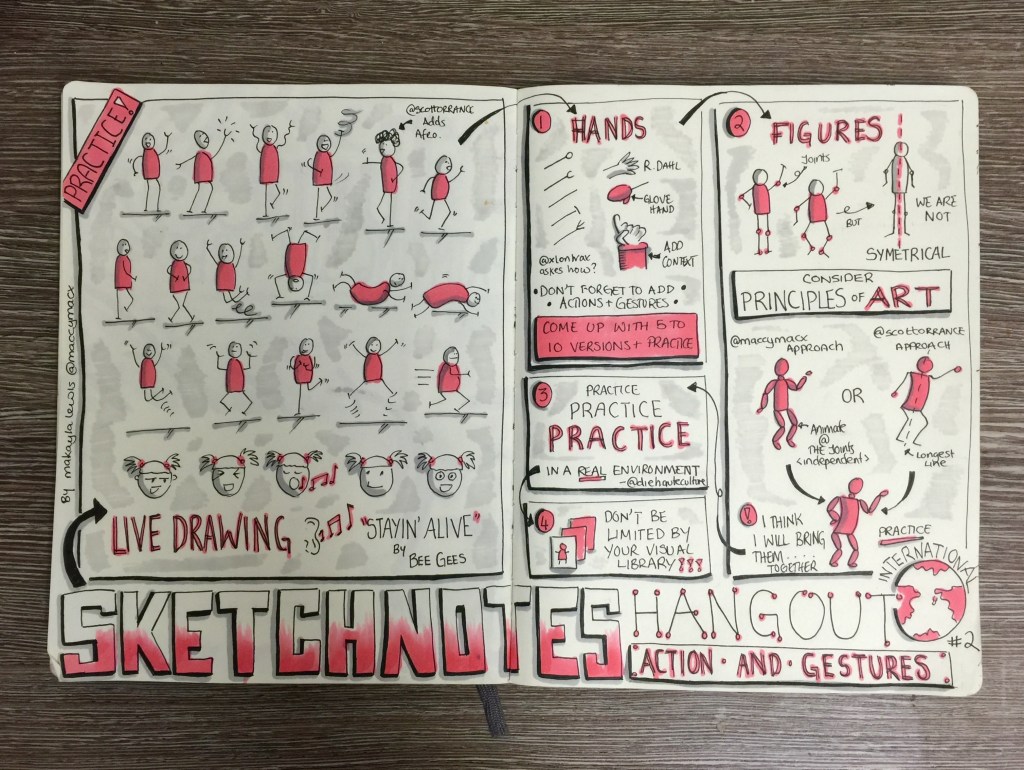 PRACTICE!
@SCOTTORRANCE
Adds
Afro.
BY makayla lewis @maccymacx
LIVE DRAWING
"STAYIN' ALIVE"
BY
BEE GEES
1 HANDS
R. DAHL
GLOVE
HAND
ADD
CONTEXT
askes how?
• DON'T FORGET TO ADD
• ACTIONS + GESTURES •
COME UP WITH 5 TO
10 VERSIONS + PRACTICE
2 FIGURES
Joints
BUT
WE ARE
NOT
SYMETRICAL
CONSIDER
PRINCIPLES OF ART
@maccymacx
APPROACH
@SCOTTORRANCE
APPROACH
OR
Animate
@
THE Joints
<independent>
Longest
Line
! I THINK
I WILL BRING
THEM.....
TOGETHER
PRACTICE
3 PRACTICE
PRACTICE
PRACTICE
IN A REAL ENVIRONMENT
- @diehauteculture
4 DON'T BE
LIMITED BY
YOUR VISUAL
LIBRARY!!!
SKETCHNOTES HANGOUT
INTERNATIONAL
#2
ACTION • AND • GESTURES